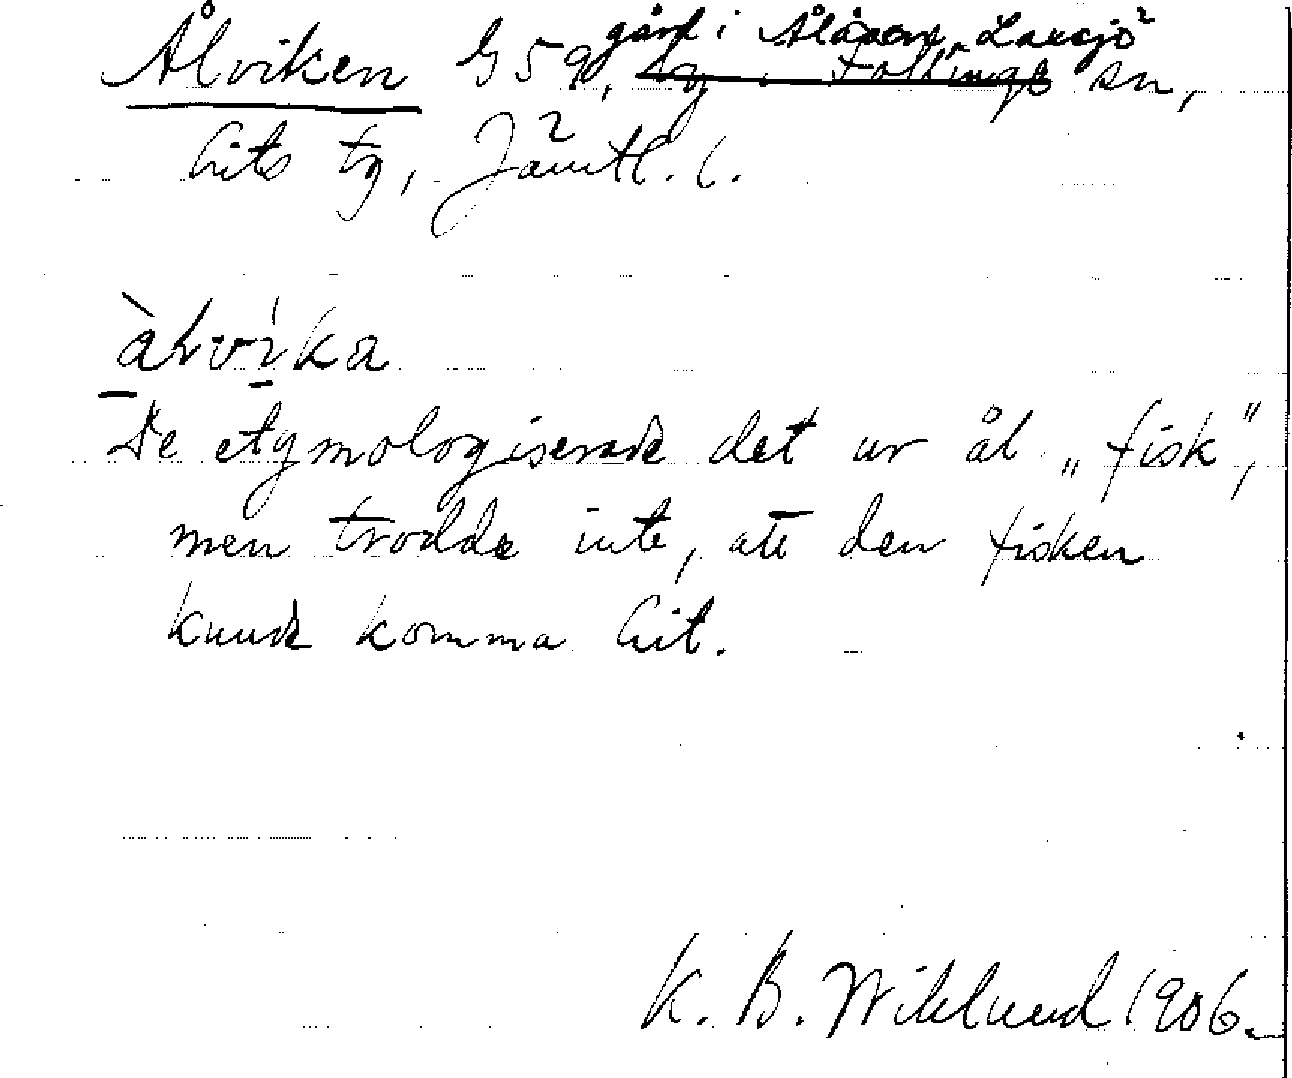 gård i Ålåsen, Laxsjö
Ålviken G 59, by i Föllinge sn,
Lits tg, Jämtl. l.
àlvika
De etymologiserade det ur ål „fisk",
men trodde inte, att den fisken
kunde komma hit.
K. B. Wiklund 1906.